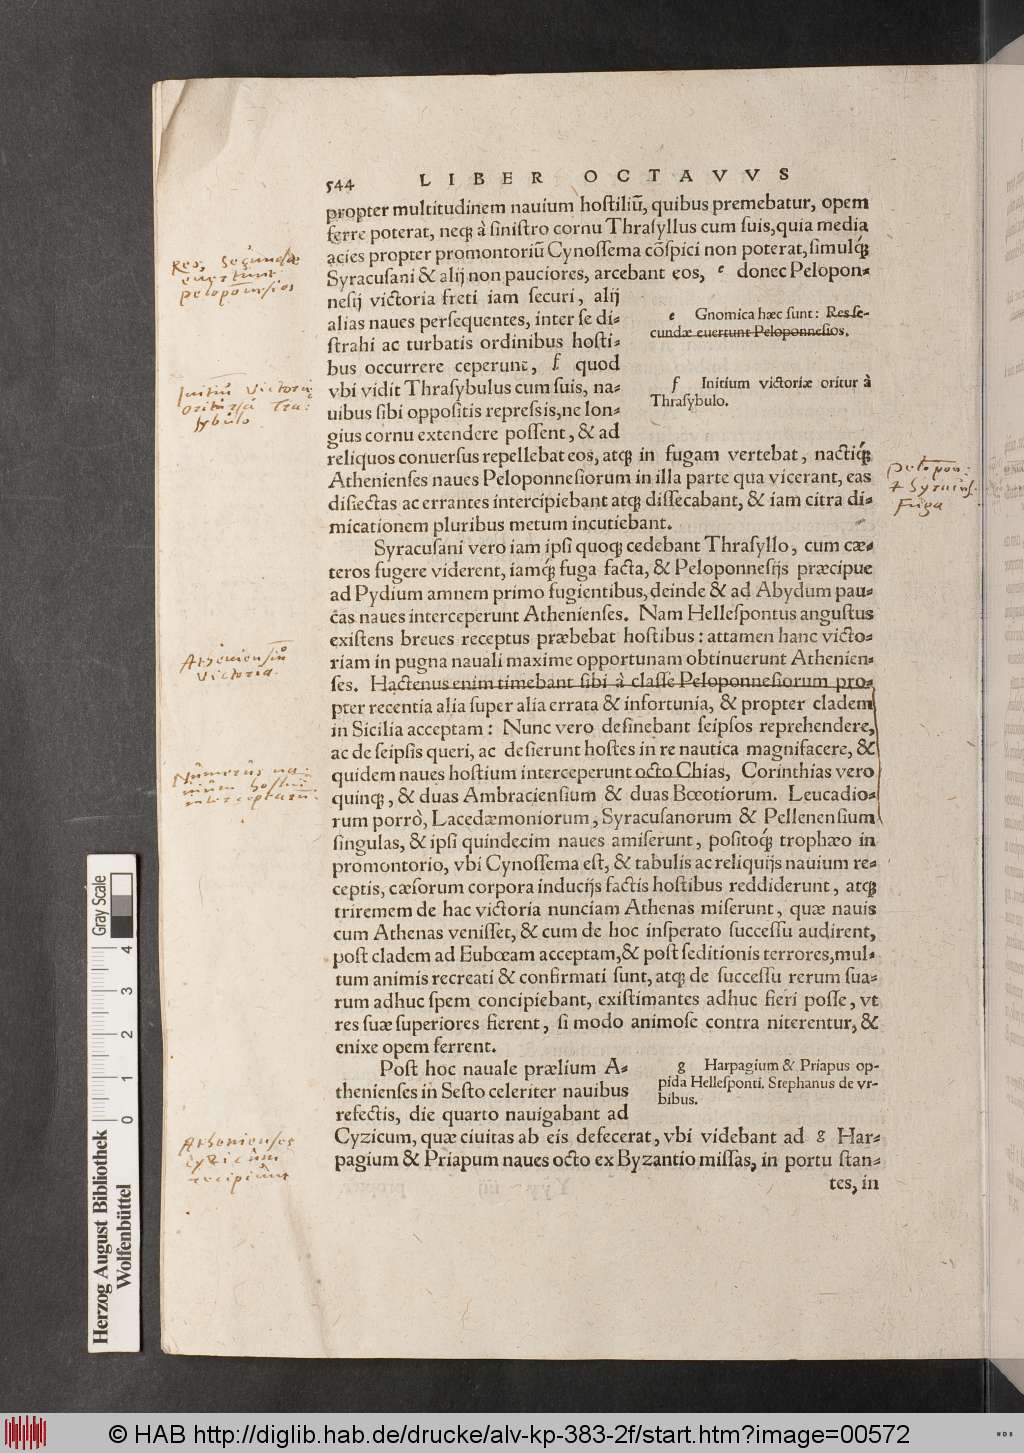 544 LIBER OCTAVVS
propter multitudinem nauium hostiliũ, quibus premebatur, opem
ferre poterat, neqꝫ à sinistro cornu Thrasyllus cum suis, quia media
acies propter promontoriũ Cynossema cõspici non poterat, simulqꝫ́
Syracusani & alij non pauciores, arcebant eos, e donec Pelopon-
nesij victoria freti iam securi, alij
alias naues persequentes, inter se di-
strahi ac turbatis ordinibus hosti-
bus occurrere ceperunt, f quod
vbi vidit Thrasybulus cum suis, na-
uibus sibi oppositis repressis, ne lon-
gius cornu extendere possent, & ad
reliquos conuersus repellebat eos, atqꝫ in fugam vertebat, nactiqꝫ́
Athenienses naues Peloponnesiorum in illa parte qua vicerant, eas
disiectas ac errantes intercipiebant atqꝫ dissecabant, & iam citra di-
micationem pluribus metum incutiebant.
e Gnomica hæc sunt: Res se-
cundæ euertunt Peloponnesios.
f Initium victoriæ oritur à
Thrasybulo.
Syracusani vero iam ipsi quoqꝫ cedebant Thrasyllo, cum cæ-
teros fugere viderent, iamqꝫ́ fuga facta, & Peloponnesijs præcipue
ad Pydium amnem primo fugientibus, deinde & ad Abydum pau-
cas naues interceperunt Athenienses. Nam Hellespontus angustus
existens breues receptus præbebat hostibus: attamen hanc victo-
riam in pugna nauali maxime opportunam obtinuerunt Athenien-
ses. Hactenus enim timebant sibi à classe Peloponnesiorum pro-
pter recentia alia super alia errata & infortunia, & propter cladem
in Sicilia acceptam: Nunc vero desinebant seipsos reprehendere,
ac de seipsis queri, ac desierunt hostes in re nautica magnifacere, &
quidem naues hostium interceperunt octo Chias, Corinthias vero
quinqꝫ, & duas Ambraciensium & duas Bœotiorum. Leucadio-
rum porrò, Lacedæmoniorum, Syracusanorum & Pellenensium
singulas, & ipsi quindecim naues amiserunt, positoqꝫ́ trophæo in
promontorio, vbi Cynossema est, & tabulis ac reliquijs nauium re-
ceptis, cæsorum corpora inducijs factis hostibus reddiderunt, atqꝫ
triremem de hac victoria nunciam Athenas miserunt, quæ nauis
cum Athenas venisset, & cum de hoc insperato successu audirent,
post cladem ad Eubœam acceptam, & post seditionis terrores, mul-
tum animis recreati & confirmati sunt, atqꝫ de successu rerum sua-
rum adhuc spem concipiebant, existimantes adhuc fieri posse, vt
res suæ superiores fierent, si modo animose contra niterentur, &
enixe opem ferrent.
Post hoc nauale prælium A-
thenienses in Sesto celeriter nauibus
refectis, die quarto nauigabant ad
Cyzicum, quæ ciuitas ab eis defecerat, vbi videbant ad g Har-
pagium & Priapum naues octo ex Byzantio missas, in portu stan-
tes, in
g Harpagium & Priapus op-
pida Hellesponti. Stephanus de vr-
bibus.
Res, secundæ
euertunt
peloponesios
Initiũ victoriæ
oritur à Tra-
sybulo
Pelopon:
& Syracus.
fuga
Atheniensiũ
victoria.
Numerus na-
uium hostiũ
interceptarũ.
Athenienses
Cyzicum
recipiunt
Herzog August Bibliothek
Wolfenbüttel
Gray Scale
0 1 2 3 4
© HAB http://diglib.hab.de/drucke/alv-kp-383-2f/start.htm?image=00572